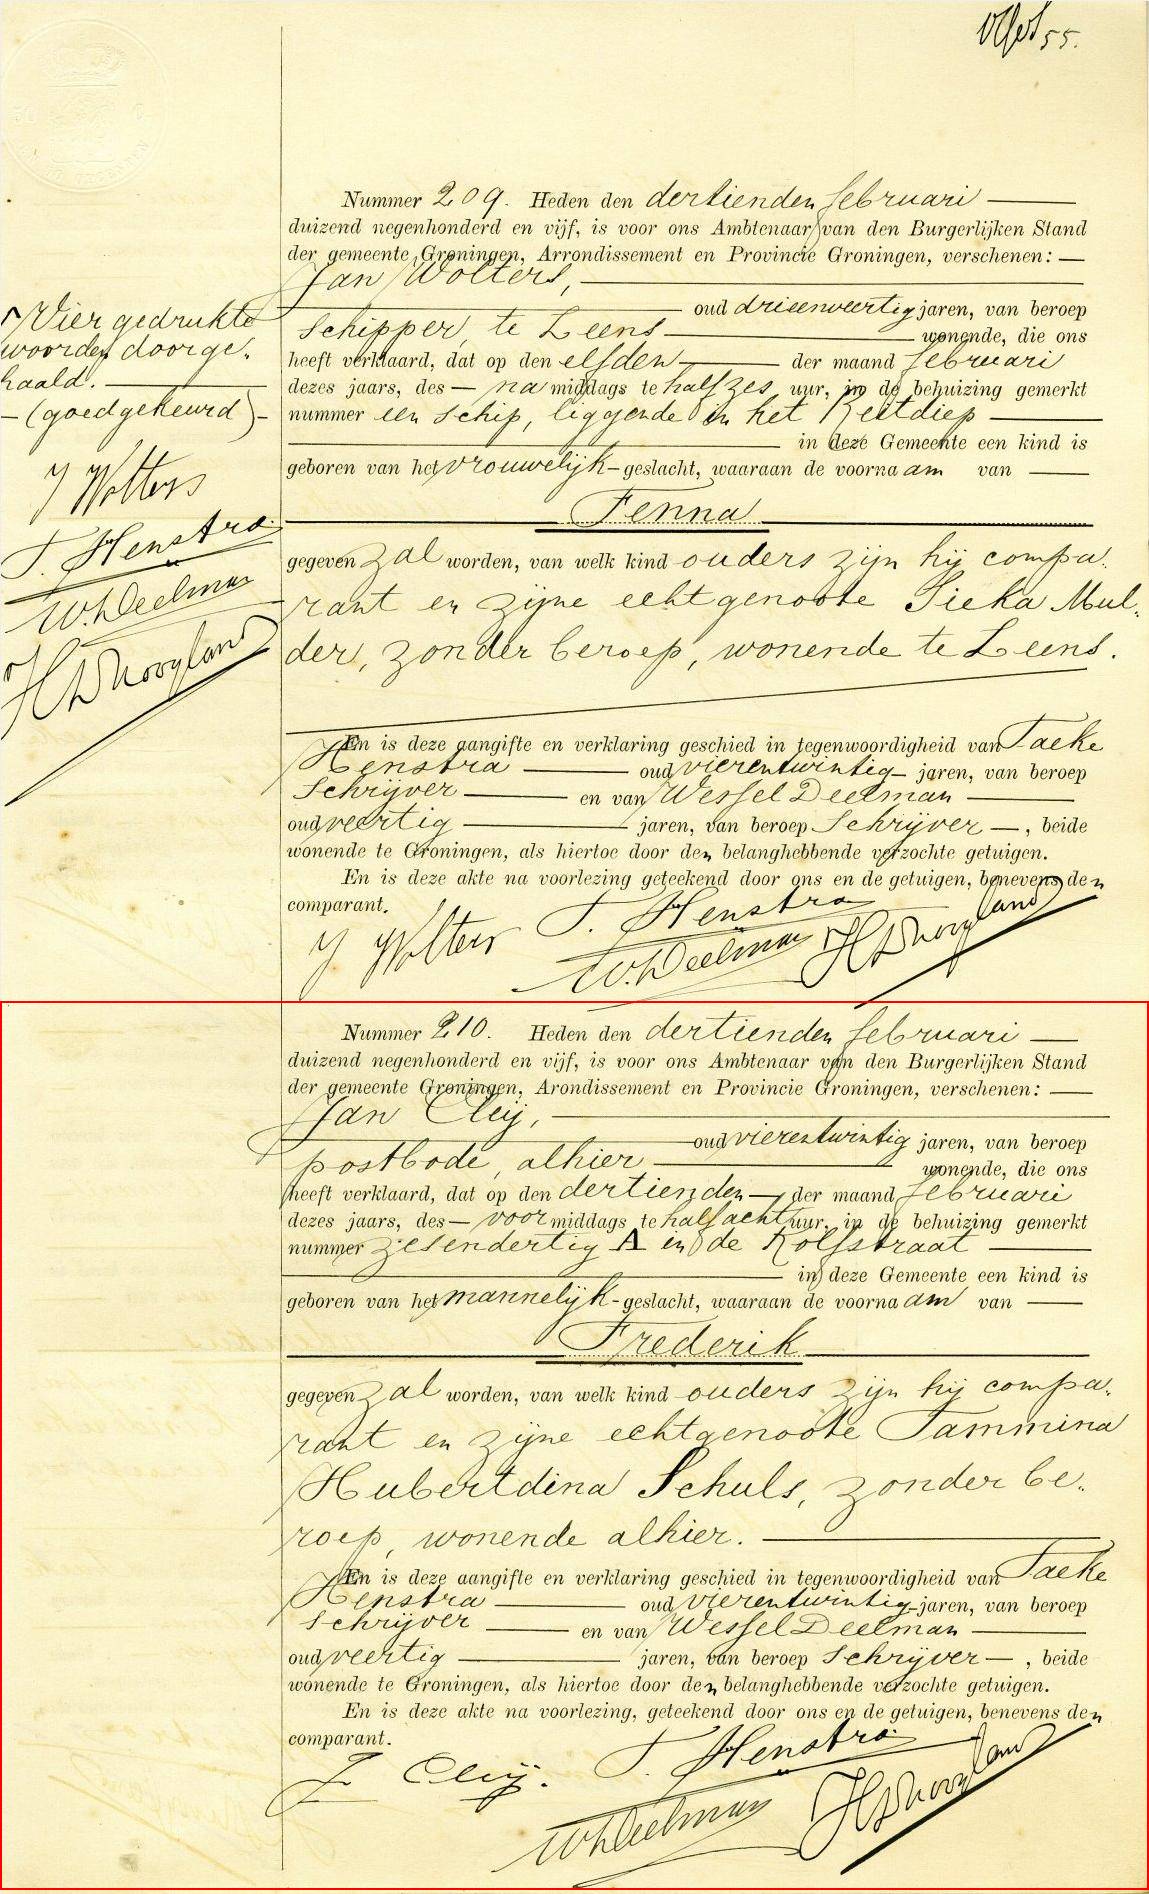 55.
Nummer 209. Heden den dertienden februari
duizend negenhonderd en vijf, is voor ons Ambtenaar van den Burgerlijken Stand
der gemeente Groningen, Arrondissement en Provincie Groningen, verschenen: —
Jan Wolters,
oud drieenveertig jaren, van beroep
Schipper, te Leens wonende, die ons
heeft verklaard, dat op den elfden der maand februari
dezes jaars, des — namiddags te half zes uur, in de behuizing gemerkt
nummer een schip, liggende in het Reitdiep
in deze Gemeente een kind is
geboren van het vrouwelijk - geslacht, waaraan de voornaam van
Fenna
gegeven zal worden, van welk kind ouders zijn hij compa-
rant en zijne echtgenoote Sieka Mul-
der, zonder beroep, wonende te Leens.
En is deze aangifte en verklaring geschied in tegenwoordigheid van Taeke
Henstra oud vierentwintig jaren, van beroep
Schrijver en van Wessel Deelman
oud veertig jaren, van beroep Schrijver —, beide
wonende te Groningen, als hiertoe door den belanghebbende verzochte getuigen.
En is deze akte na voorlezing geteekend door ons en de getuigen, benevens den
comparant.
J Wolters T. Henstra
W. Deelman H D Hoogland
Vier gedrukte
woorden doorge-
haald.
— (goedgekeurd) —
J Wolters
T. Henstra
W. Deelman
H D Hoogland
Nummer 210. Heden den dertienden februari
duizend negenhonderd en vijf, is voor ons Ambtenaar van den Burgerlijken Stand
der gemeente Groningen, Arondissement en Provincie Groningen, verschenen: —
Jan Cleij,
oud vierentwintig jaren, van beroep
postbode, alhier wonende, die ons
heeft verklaard, dat op den dertienden — der maand februari
dezes jaars, des — voormiddags te half acht uur, in de behuizing gemerkt
nummer zesendertig A in de Kolfstraat
in deze Gemeente een kind is
geboren van het mannelijk - geslacht, waaraan de voornaam van
Frederik
gegeven zal worden, van welk kind ouders zijn hij compa-
rant en zijne echtgenoote Tammina
Hubertdina Schuls, zonder be-
roep, wonende alhier.
En is deze aangifte en verklaring geschied in tegenwoordigheid van Taeke
Henstra oud vierentwintig jaren, van beroep
Schrijver en van Wessel Deelman
oud veertig jaren, van beroep Schrijver —, beide
wonende te Groningen, als hiertoe door den belanghebbende verzochte getuigen.
En is deze akte na voorlezing, geteekend door ons en de getuigen, benevens den
comparant.
J Cleij. T. Henstra
W Deelman H D Hoogland